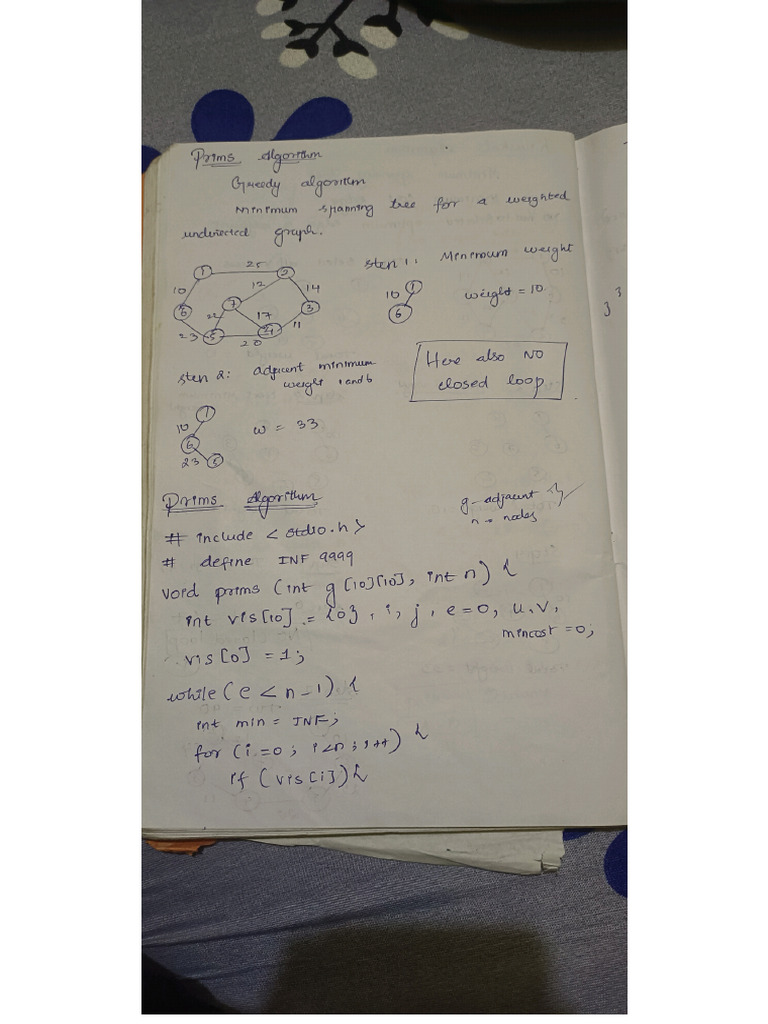 Prims Algorithm
Greedy algorithm
Minimum spanning tree for a weighted
undirected graph.
1 25 2
10 12 14
6 7 3
22 17 11
23 5 20 4
Step 1: Minimum weight
10 1
6
weight = 10
Step 2: adjacent minimum
weight 1 and 6
Here also NO
closed loop
1
10
6
23 5
w = 33
Prims Algorithm
g - adjacent
n → nodes
# include < stdio.h >
# define INF 9999
void prims (int g [10][10], int n) {
int vis[10] = {0}, i, j, e=0, u, v,
mincost = 0;
vis[0] = 1;
while (e < n-1) {
int min = INF;
for (i=0; i<n; i++) {
if (vis[i]) {